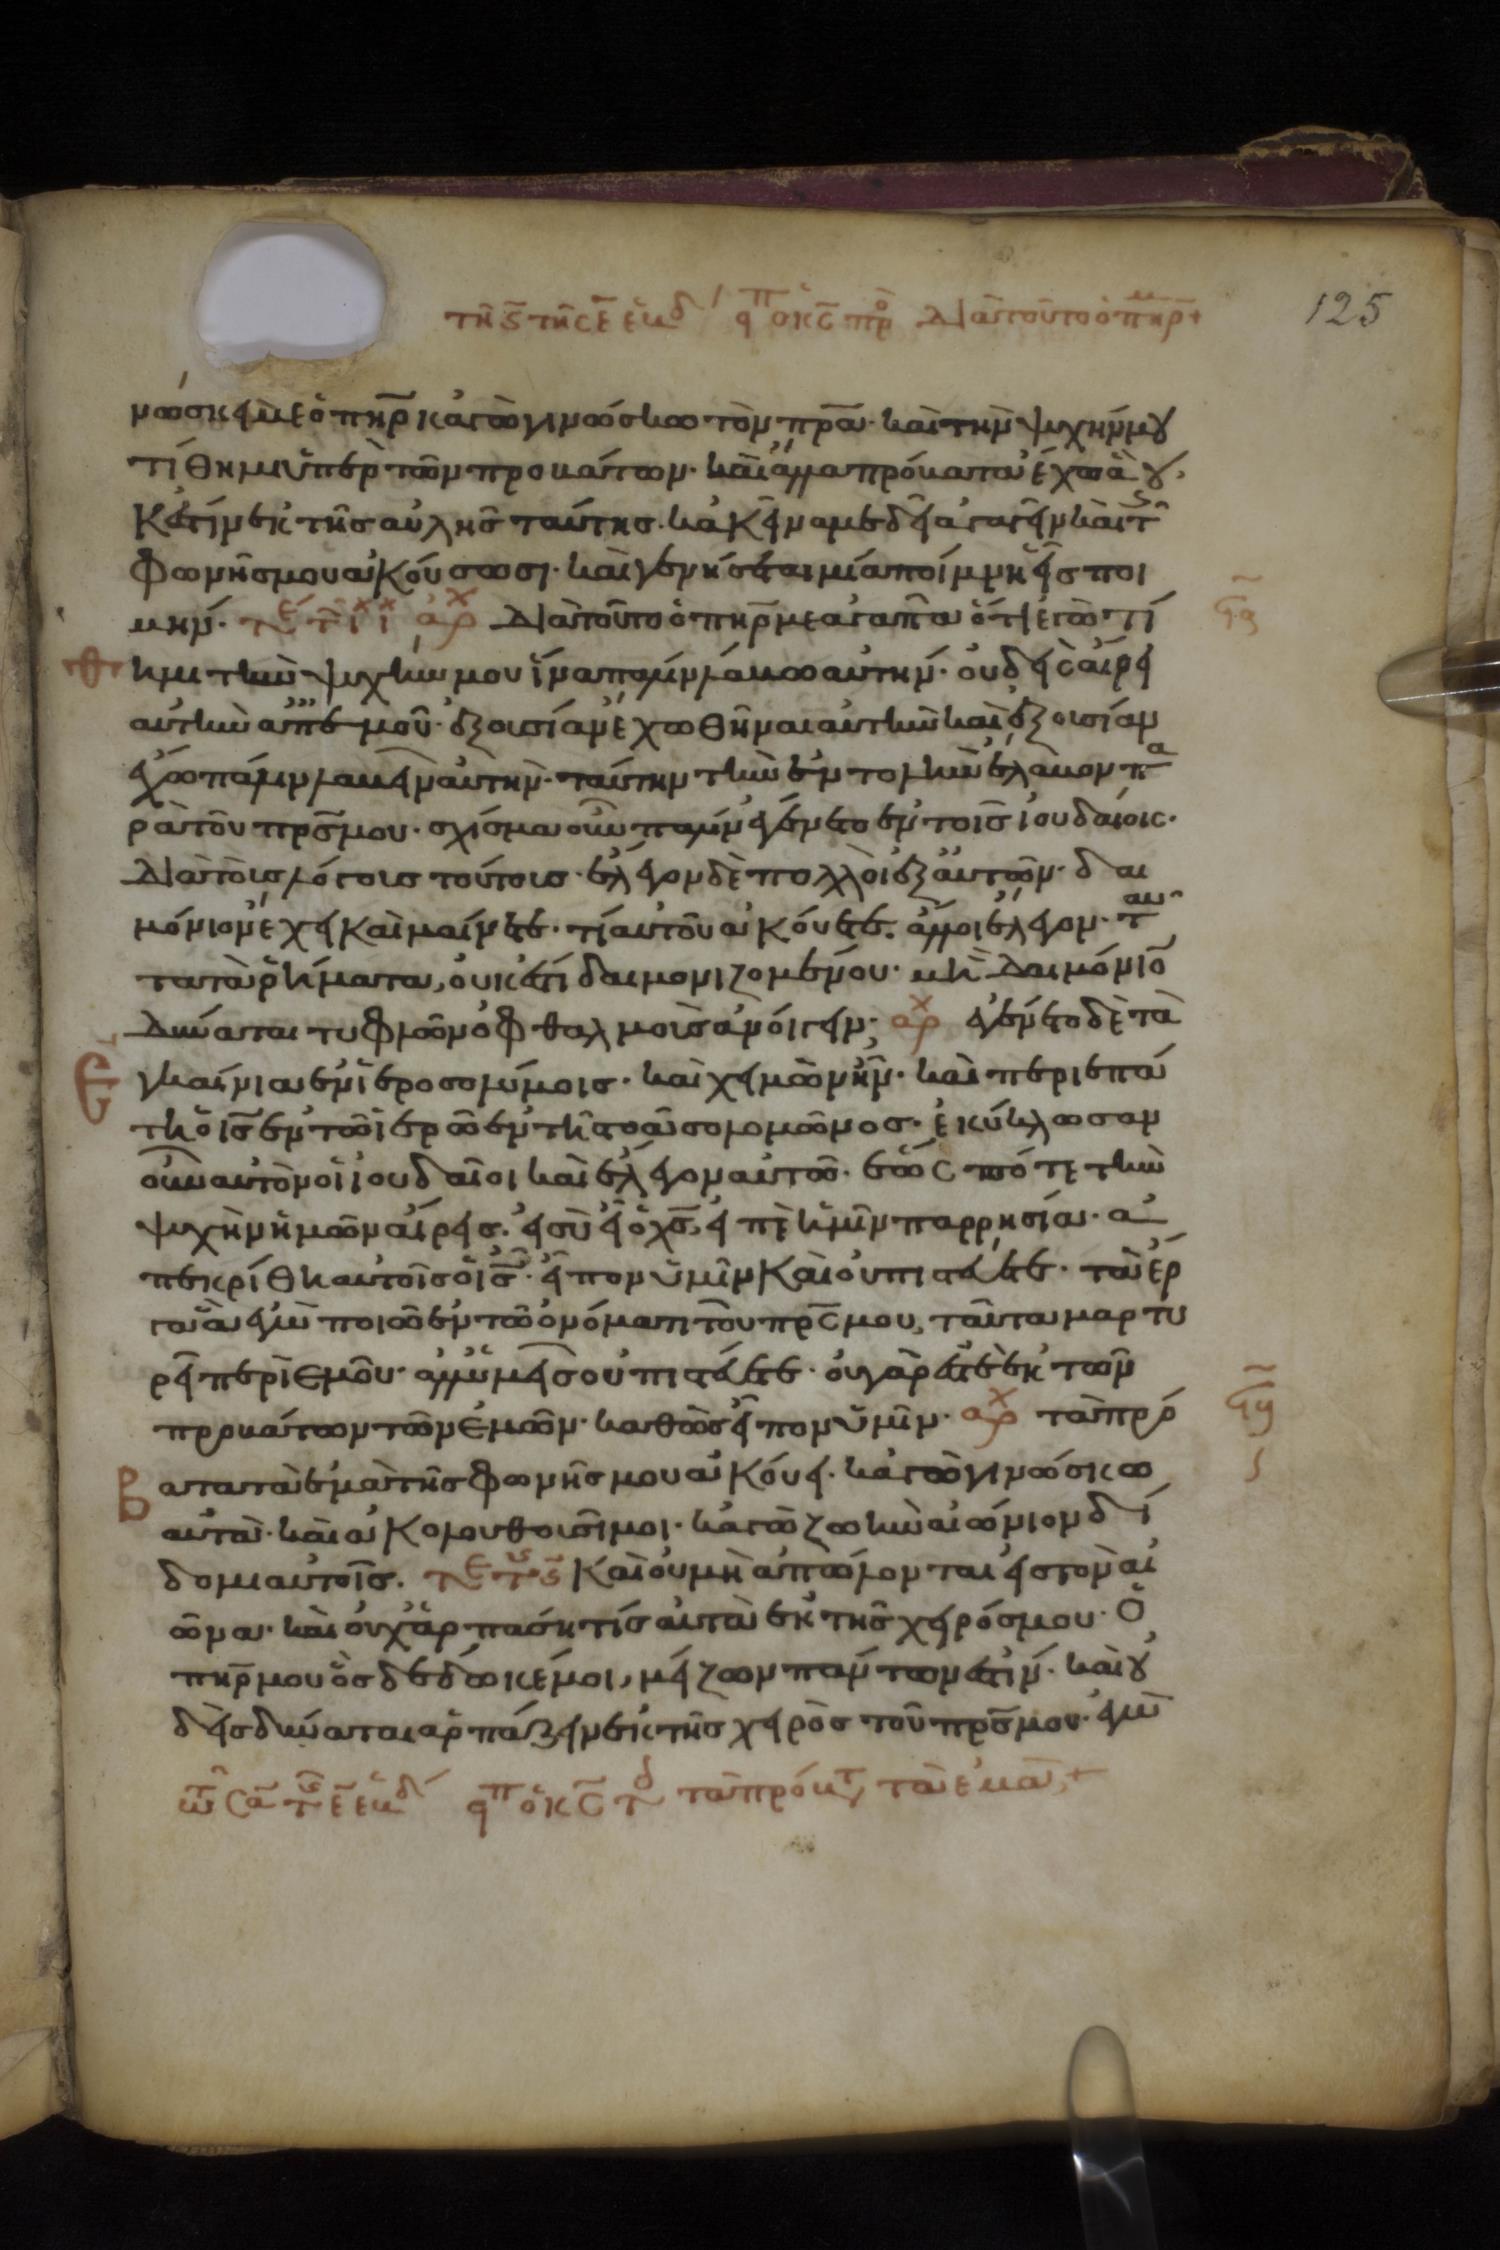 τῆ ϛ τῆς ε ἑβδ εἶπεν ὁ κς πρ Διὰτοῦτο ὁ πηρ +
125
νώσκει με ὁ πηρ κἀγὼ γινώσκω τὸν πρα· καὶ τὴν ψυχήν μου
τίθημι ὑπὲρ τῶν προβάτων· καὶ ἄλλα πρόβατα ἔχω ἃ οὐ
κ ἔστιν ἐκ τῆς αὐλῆς ταύτης· κἀκεῖνα με δεῖ ἀγαγεῖν καὶ τῆς
φωνῆς μου ἀκούσωσι· καὶ γενήσεται μία ποίμνη εἷς ποι
μήν· αρχ Διὰ τοῦτο ὁ πηρ με ἀγαπᾶ ὅτι ἐγὼ τί
θημι τὴν ψυχήν μου ἵνα πάλιν λάβω αὐτήν· οὐδεὶς αἴρει
αὐτὴν ἀπ ἐμοῦ· ἐξουσίαν ἔχω θεῖναι αὐτὴν καὶ ἐξουσίαν
ἔχω πάλιν λαβεῖν αὐτήν· ταύτην τὴν ἐντολὴν ἔλαβον πα
ρὰ τοῦ πρς μου· σχίσμα οὖν πάλιν ἐγένετο ἐν τοῖς ἰουδαίοις·
Διὰ τοὺς λόγους τούτους· ἔλεγον δὲ πολλοὶ ἐξ αὐτῶν· δαι
μόνιον ἔχει καὶ μαίνεται· τί αὐτοῦ ἀκούετε· ἄλλοι ἔλεγον· ταῦ
τα τὰ ῥήματα, οὐκ ἔστι δαιμονιζομένου· μὴ Δαιμόνιον
Δύναται τυφλῶν ὀφθαλμοὺς ἀνοίγειν; αρχ ἐγένετο δὲ τὰ
ἐγκαίνια ἐν ἱεροσολύμοις· καὶ χειμὼν ἦν· καὶ περιεπά
τη ὁ ις ἐν τῶ ἱερῶ ἐν τῆ στοᾶ σολομῶνος· ἐκύκλωσαν
οὖν αὐτὸν οἱ ἰουδαῖοι καὶ ἔλεγον αὐτῶ· ἕως πότε τὴν
ψυχὴν ἡμῶν αἴρεις· εἰ σὺ εἶ ὁ χς, εἰπὲ ἡμῖν παρρησία· ἀ
πεκρίθη αὐτοῖς ὁ ις· εἶπον ὑμῖν Καὶ οὐ πιστεύετε· τὰ ἔρ
γα ἃ ἐγὼ ποιῶ ἐν τῶ ὀνόματι τοῦ πρς μου, ταῦτα μαρτυ
ρεῖ περὶ ἐμοῦ· ἀλλ ὑμεῖς οὐ πιστεύετε· οὐ γὰρ ἐστὲ ἐκ τῶν
προβάτων τῶν ἐμῶν· καθὼς εἶπον ὑμῖν· αρχ τὰ πρό
βατα τὰ ἐμὰ τῆς φωνῆς μου ἀκούει· κἀγὼ γινώσκω
αὐτά· καὶ ἀκολουθοῦσίν μοι· κἀγὼ ζωὴν αἰώνιον δί
δομι αὐτοῖς· Καὶ οὐ μὴ ἀπώλονται εἰς τὸν αἰ
ῶνα· καὶ οὐχ ἁρπάση τίς αὐτὰ ἐκ τῆς χειρός μου· Ὁ
πηρ μου ὃς δέδωκέ μοι, μείζων πάντων ἐστίν· καὶ οὐ
δεὶς δύναται ἁρπάζειν ἐκ τῆς χειρὸς τοῦ πρς μου· ἐγὼ
εἶπεν ὁ κς τὰ πρόβατα τὰ ἐμά +